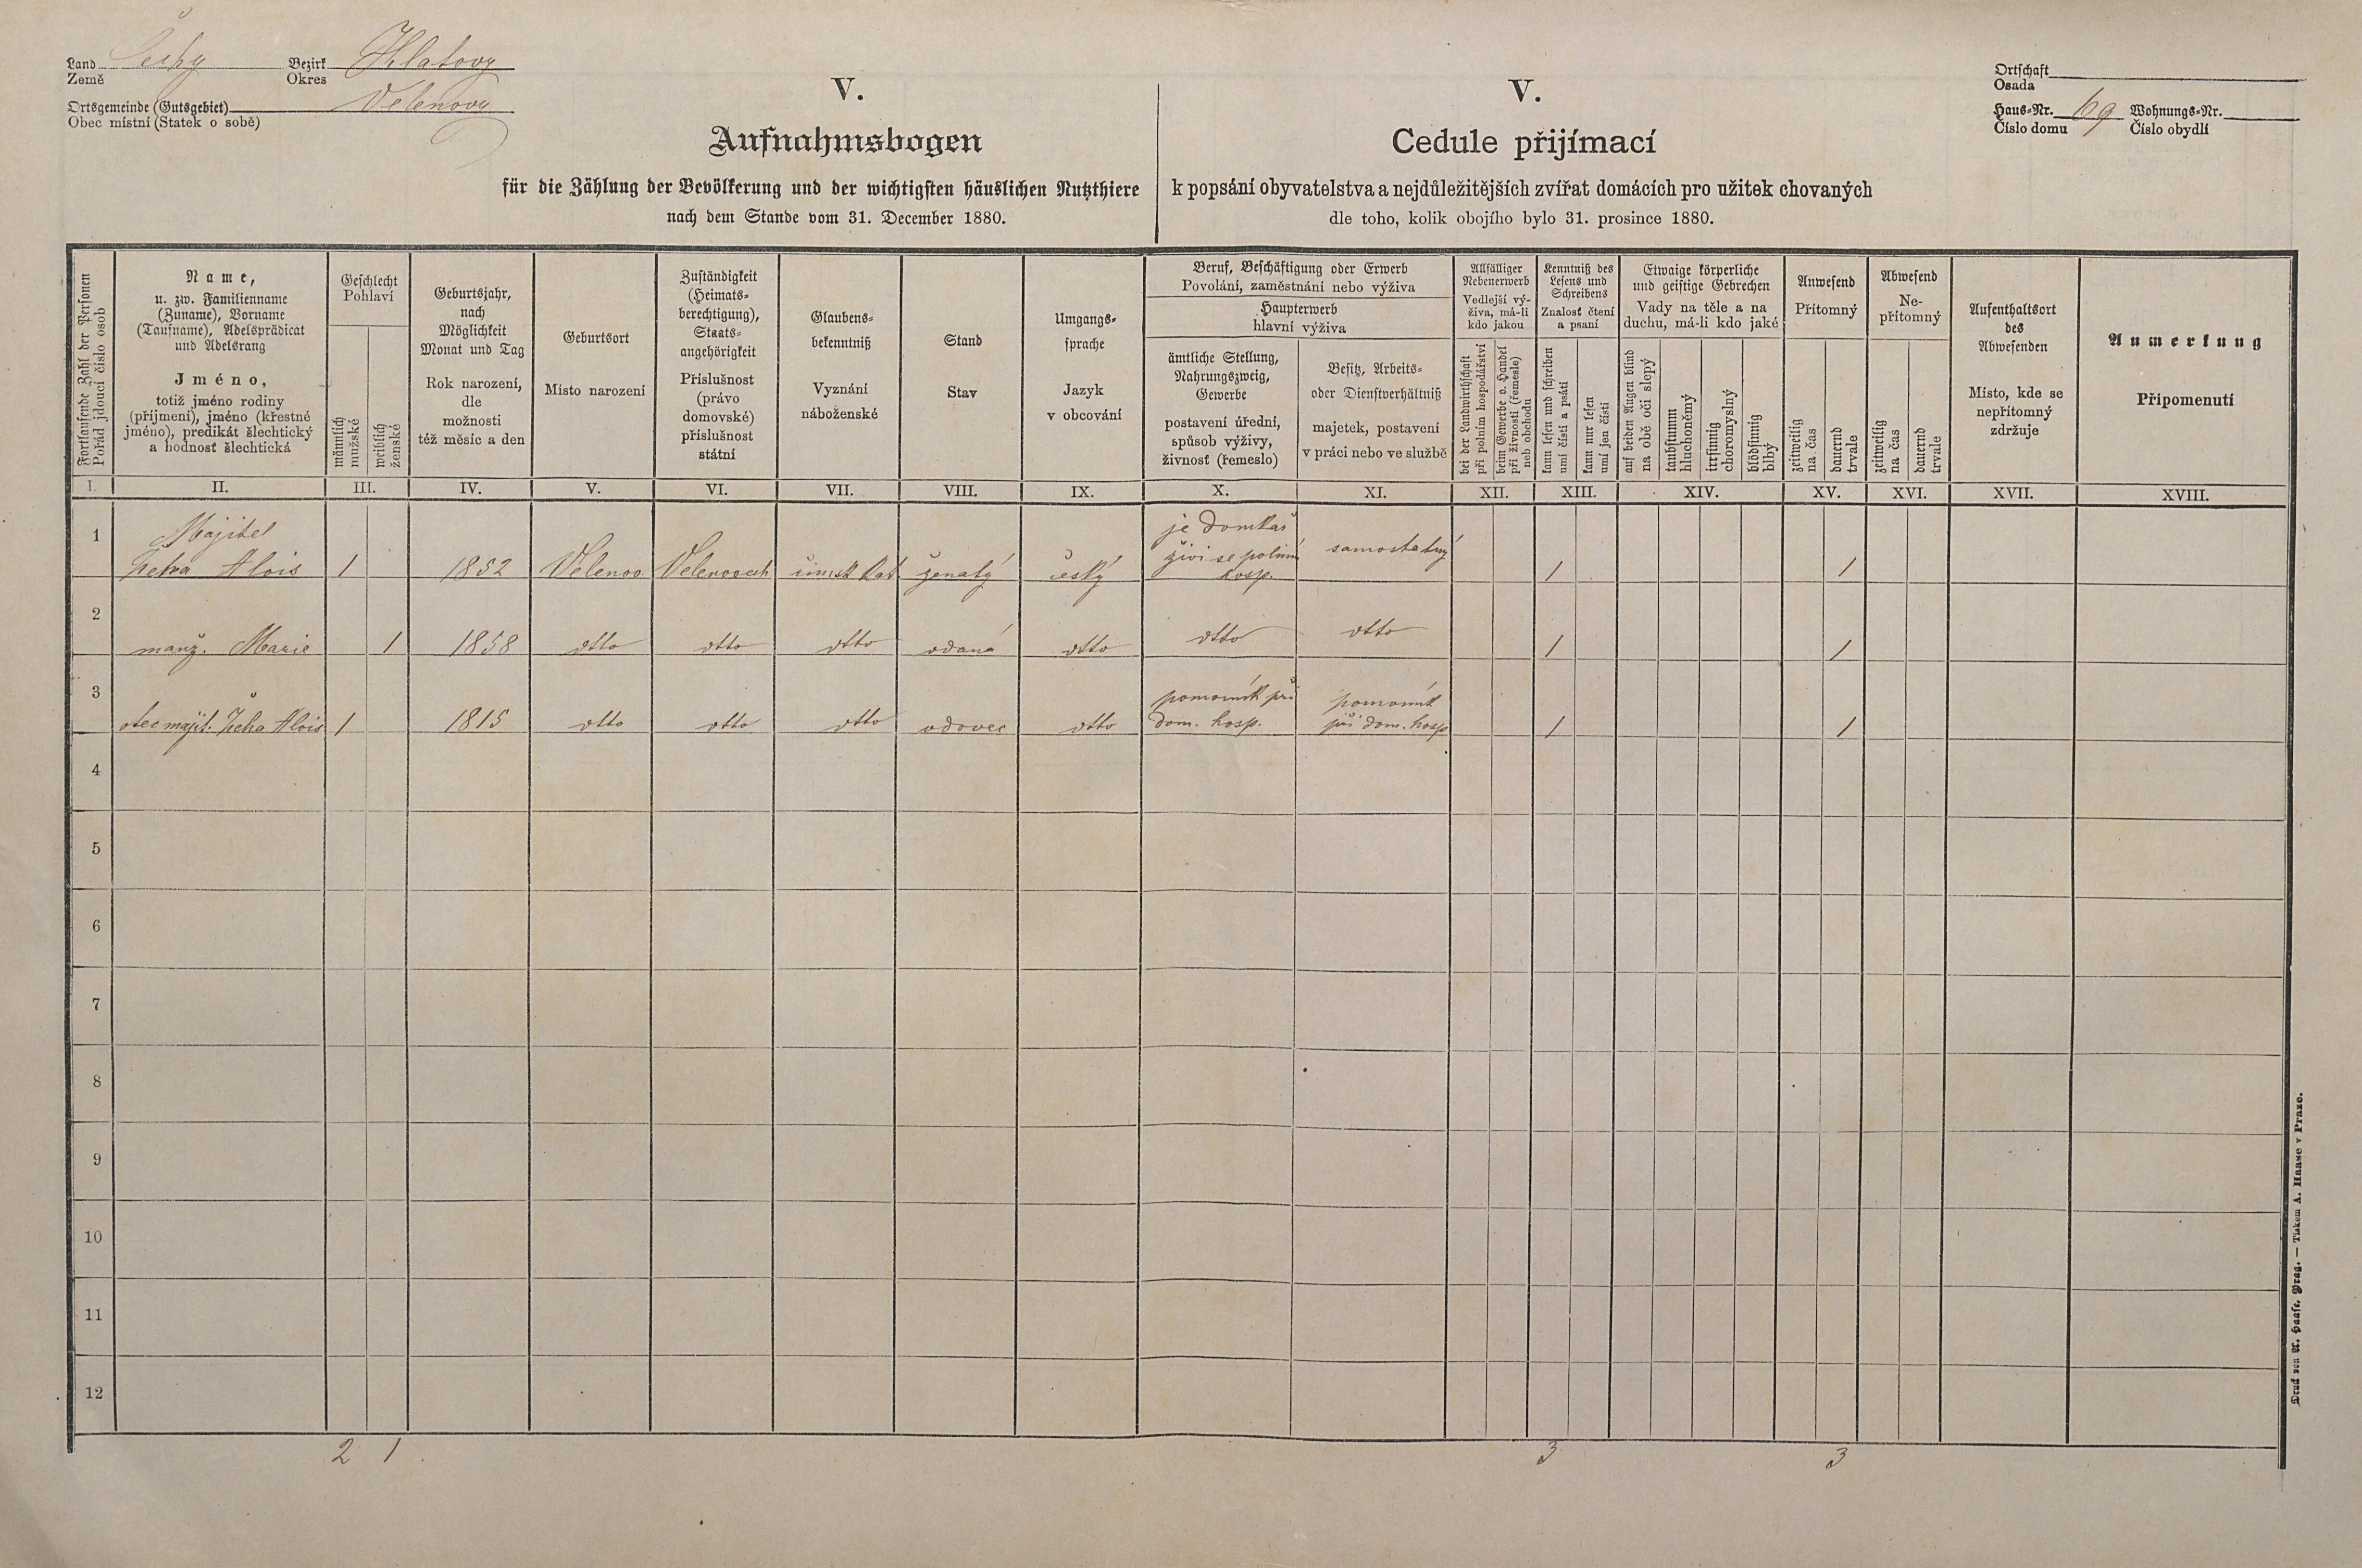 Land Čechy Bezirk Klatovy
Země Okres
Ortsgemeinde (Gutsgebiet) Velenovy
Obec místní (Statek o sobě)
V.
Aufnahmsbogen
für die Zählung der Bevölkerung und der wichtigsten häuslichen Nutzthiere
nach dem Stande vom 31. December 1880.
V.
Cedule přijímací
k popsání obyvatelstva a nejdůležitějších zvířat domácích pro užitek chovaných
dle toho, kolik obojího bylo 31. prosince 1880.
Ortschaft
Osada
Haus-Nr. 69 Wohnungs-Nr.
Číslo domu Číslo obydlí
Fortlaufende Zahl der Personen
Pořád jdoucí číslo osob
Name,
u. zw. Familienname
(Zuname), Vorname
(Taufname), Adelsprädicat
und Adelsrang
Jméno,
totiž jméno rodiny
(příjmení), jméno (křestné
jméno), predikát šlechtický
a hodnosť šlechtická
Geschlecht
Pohlaví
männlich
mužské
weiblich
ženské
Geburtsjahr,
nach
Möglichkeit
Monat und Tag
Rok narození,
dle
možnosti
též měsíc a den
Geburtsort
Místo narození
Zuständigkeit
(Heimats-
berechtigung),
Staats-
angehörigkeit
Příslušnost
(právo
domovské)
příslušnost
státní
Glaubens-
bekenntniß
Vyznání
náboženské
Stand
Stav
Umgangs-
sprache
Jazyk
v obcování
Beruf, Beschäftigung oder Erwerb
Povolání, zaměstnání nebo výživa
Haupterwerb
hlavní výživa
ämtliche Stellung,
Nahrungszweig,
Gewerbe
postavení úřední,
spůsob výživy,
živnosť (řemeslo)
Besitz, Arbeits-
oder Dienstverhältniß
majetek, postavení
v práci nebo ve službě
Allfälliger
Nebenerwerb
Vedlejší vý-
živa, má-li
kdo jakou
bei der Landwirthschaft
při polním hospodářství
beim Gewerbe o. Handel
při živnosti (řemesle)
neb obchodu
Kenntniß des
Lesens und
Schreibens
Znalosť čtení
a psaní
kann lesen und schreiben
umí čísti a psáti
kann nur lesen
umí jen čísti
Etwaige körperliche
und geistige Gebrechen
Vady na těle a na
duchu, má-li kdo jaké
auf beiden Augen blind
na obě oči slepý
taubstumm
hluchoněmý
irrsinnig
choromyslný
blödsinnig
blbý
Anwesend
Přítomný
zeitweilig
na čas
dauernd
trvale
Abwesend
Ne-
přítomný
zeitweilig
na čas
dauernd
trvale
Aufenthaltsort
des
Abwesenden
Místo, kde se
nepřítomný
zdržuje
Anmerkung
Připomenutí
I. II. III. IV. V. VI. VII. VIII. IX. X. XI. XII. XIII. XIV. XV. XVI. XVII. XVIII.
1 Majitel
Alois 1 1852 Velenov Velenovech římsk. kat. ženatý český je domkař samostatný 1 1
živí se polním
hosp.
2
manž. Marie 1 1858 dtto dtto dtto vdaná dtto dtto dtto 1 1
3 pomocník při pomocník
otec majit. Alois 1 1815 dtto dtto dtto vdovec dtto dom. hosp. při dom. hosp 1 1
4
5
6
7
8
9
10
11
12
2 1 3 3
Druck von A. Haase, Prag. — Tiskem A. Haase v Praze.